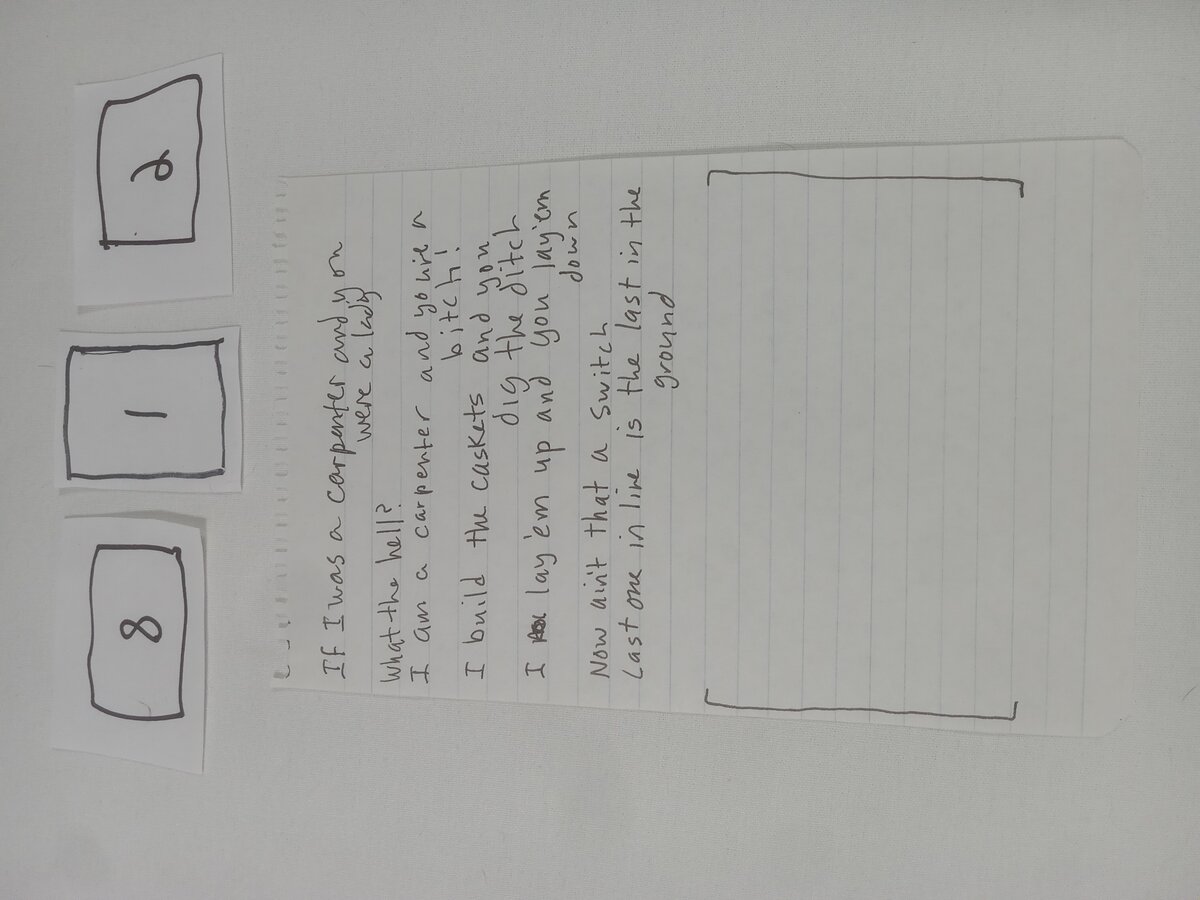 8
1
2
If I was a carpenter and you
were a lady
What the hell?
I am a carpenter and you're a
bitch!
I build the caskets and you
dig the ditch
I lay 'em up and you lay 'em
down
Now ain't that a switch
Last one in line is the last in the
ground